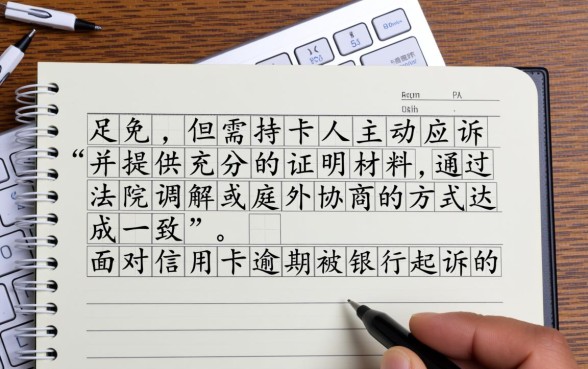 足免，但需持卡人主动应诉
“并提供充分的证明材料，通过
法院调解或庭外协商的方式达
成一致”。
面对信用卡逾期被银行起诉的